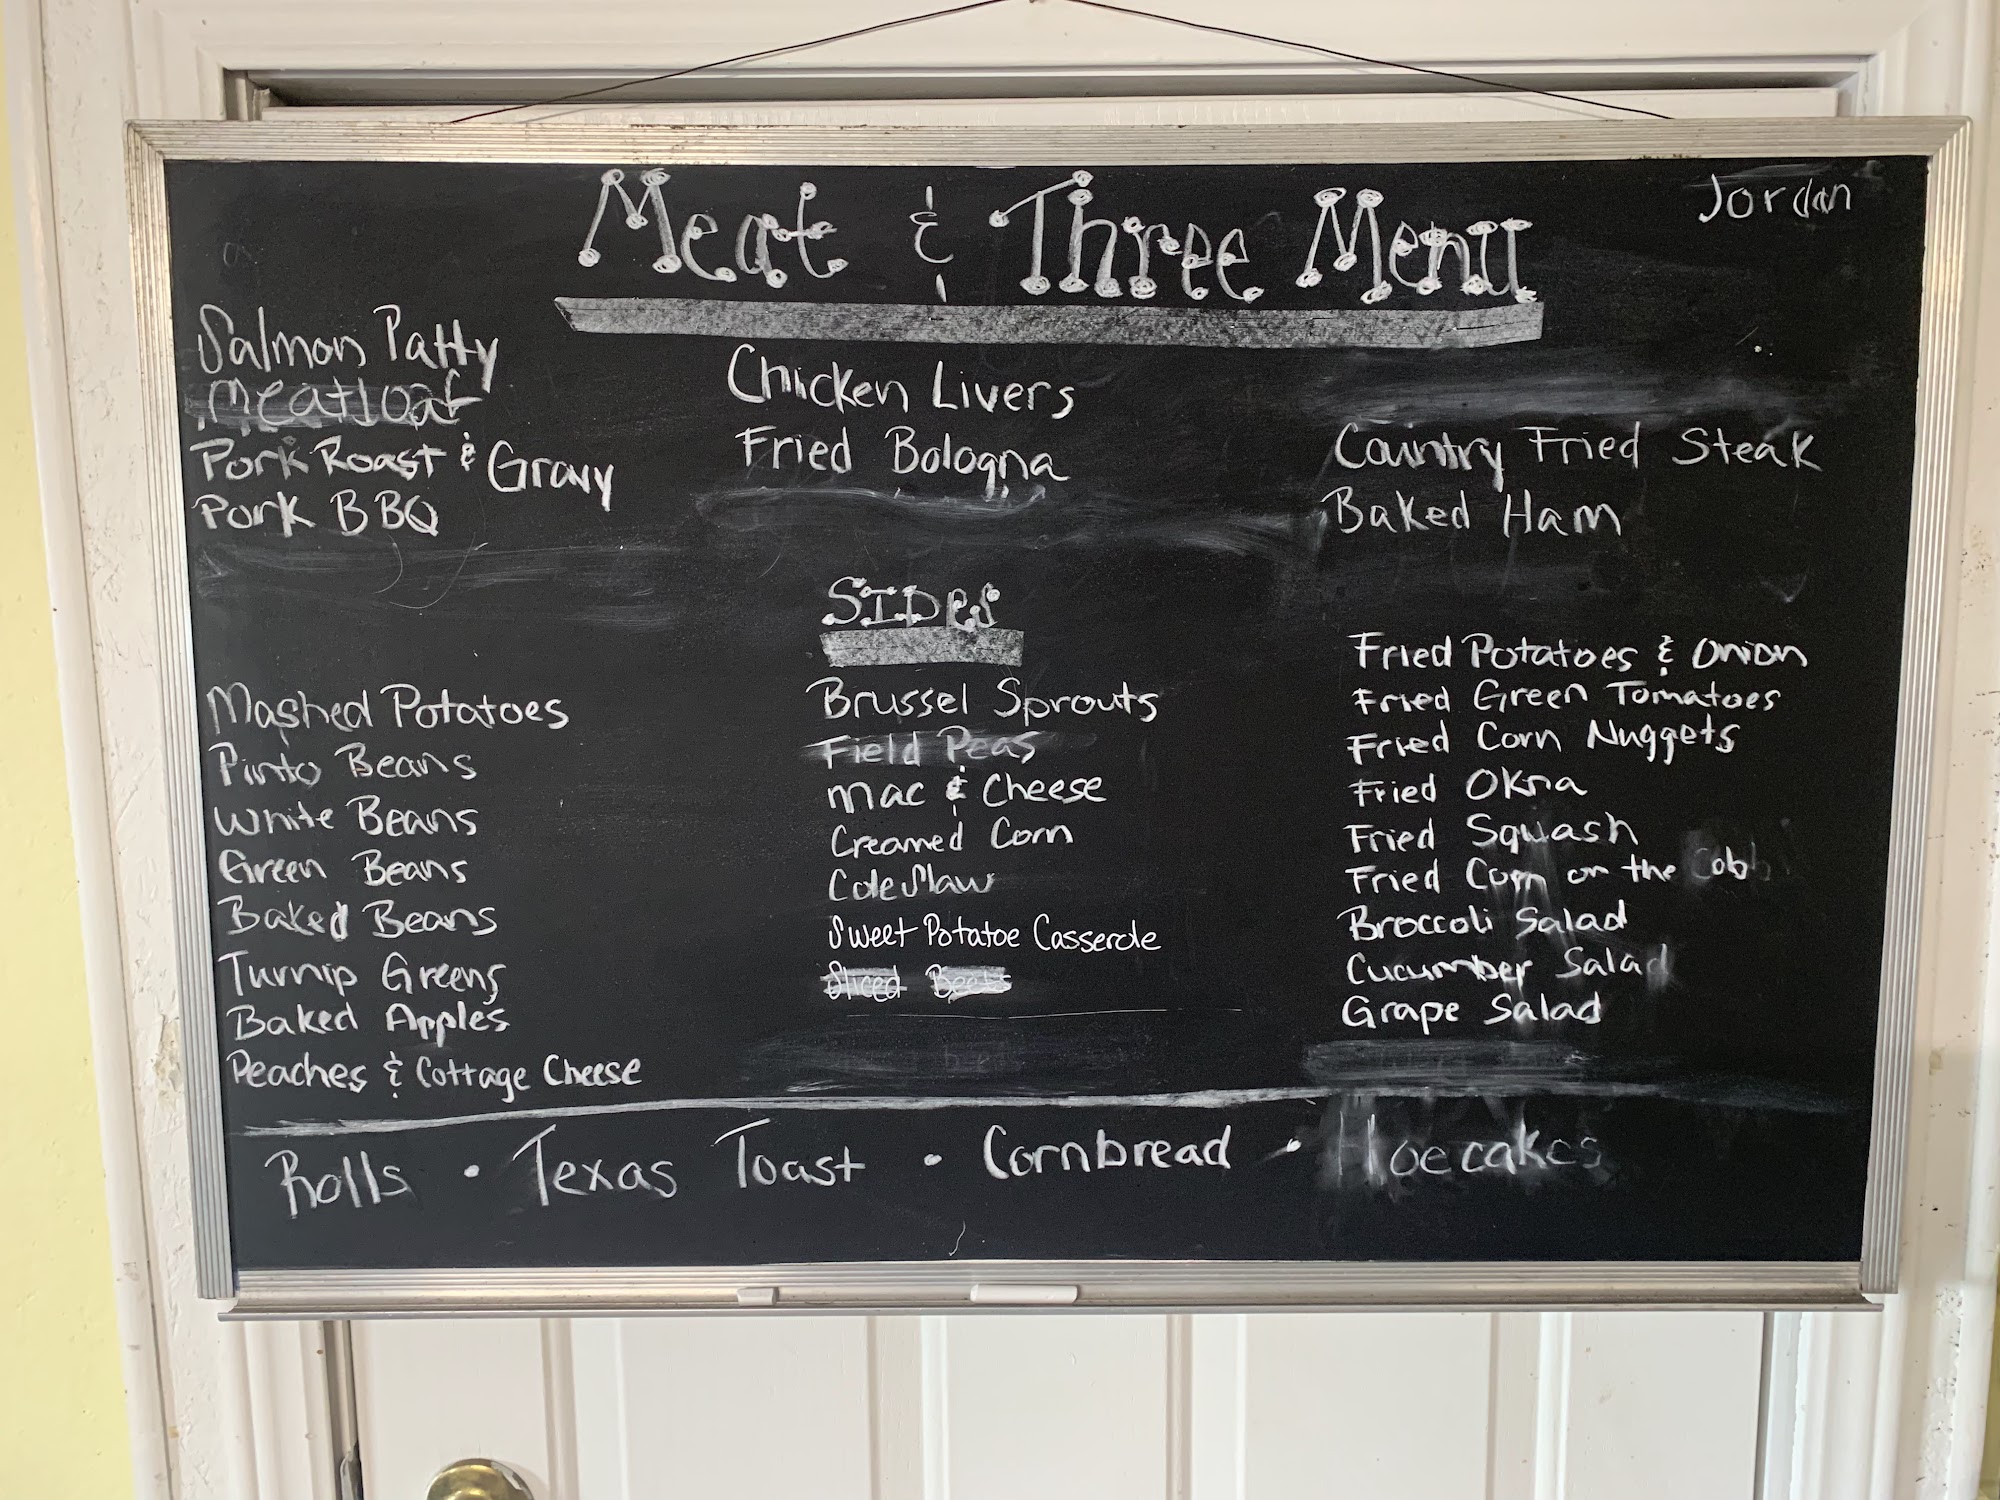 Jordan
Meat & Three Menu
Salmon Patty
Meatloaf
Pork Roast & Gravy
Pork BBQ
Chicken Livers
Fried Bologna
Country Fried Steak
Baked Ham
SIDes
Mashed Potatoes
Pinto Beans
White Beans
Green Beans
Baked Beans
Turnip Greens
Baked Apples
Peaches & Cottage Cheese
Brussel Sprouts
Field Peas
Mac & Cheese
Creamed Corn
Cole Slaw
Sweet Potatoe Casserole
Sliced Beets
Fried Potatoes & Onion
Fried Green Tomatoes
Fried Corn Nuggets
Fried Okra
Fried Squash
Fried Corn on the Cob
Broccoli Salad
Cucumber Salad
Grape Salad
Rolls • Texas Toast • Cornbread • Hoecakes